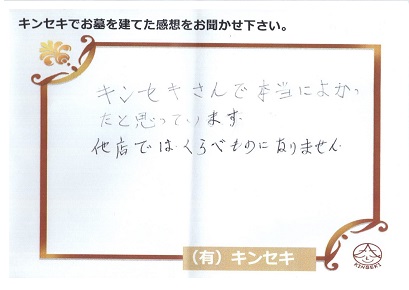 キンセキでお墓を建てた感想をお聞かせ下さい。
キンセキさんで本当によかっ
たと思っています
他店ではくらべものになりません
(有)キンセキ
KINSEKI